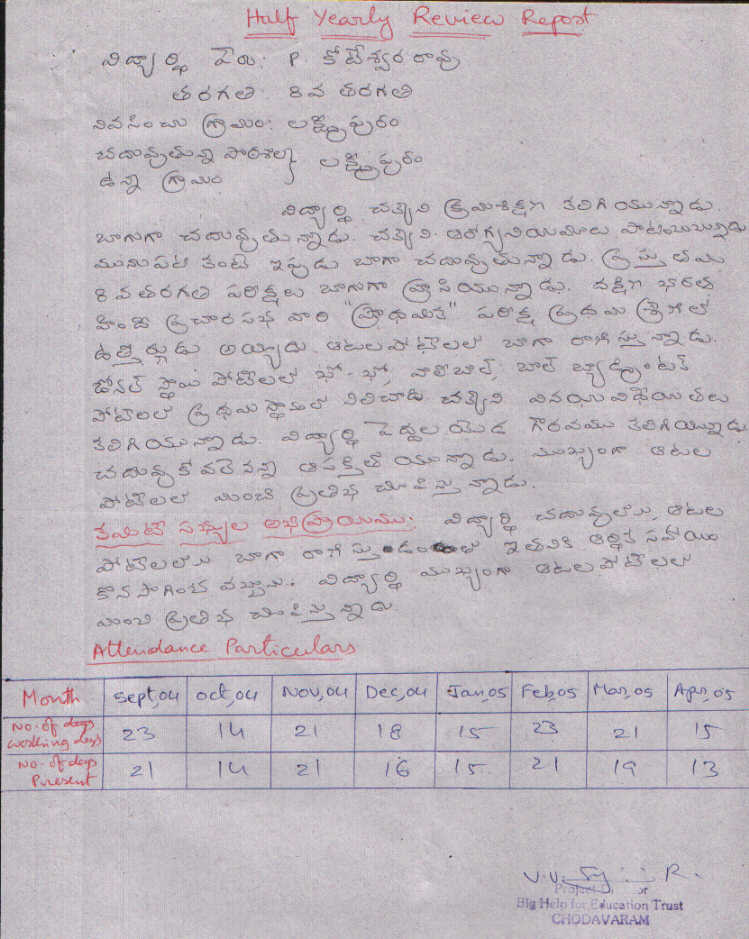 Half Yearly Review Report
విద్యార్థి పేరు: P. కోటేశ్వరరావు
తరగతి: 8వ తరగతి
నివసించు గ్రామం: లక్ష్మీపురం
చదువుతున్న పాఠశాల
ఉన్న గ్రామం } లక్ష్మీపురం
విద్యార్థి చక్కని క్రమశిక్షణ కలిగియున్నాడు.
బాగుగా చదువుతున్నాడు. చక్కని ఆరోగ్యనియమాలు పాటించుచున్నాడు
మునుపటి కంటే ఇప్పుడు బాగా చదువుతున్నాడు. ప్రస్తుతము
8వ తరగతి పరీక్షలు బాగుగా వ్రాసియున్నాడు. దక్షిణ భారత
హిందీ ప్రచార సభ వారి "ప్రాథమిక" పరీక్ష ప్రథమ శ్రేణిలో
ఉత్తీర్ణుడు అయ్యాడు. ఆటలపోటీలలో బాగా రాణిస్తున్నాడు.
జోనల్ స్థాయి పోటీలలో ఖో-ఖో, వాలీబాల్, బాల్ బ్యాడ్మింటన్
పోటీలలో ప్రథమ స్థానంలో నిలిచాడు చక్కని వినయవిధేయతలు
కలిగియున్నాడు. విద్యార్థి పెద్దల యెడ గౌరవము కలిగియున్నాడు.
చదువుకోవలెనన్న ఆసక్తితో యున్నాడు. ముఖ్యంగా ఆటల
పోటీలలో మంచి ప్రతిభ చూపిస్తున్నాడు.
కమిటీ సభ్యుల అభిప్రాయము: విద్యార్థి చదువులోను, ఆటల
పోటీలలోను బాగా రాణిస్తుండడంతో ఇతనికి ఆర్థిక సహాయం
కొనసాగించ వచ్చును. విద్యార్థి ముఖ్యంగా ఆటలపోటీలలో
మంచి ప్రతిభ చూపిస్తున్నాడు
Attendance Particulars
Month Sept,04 Oct,04 Nov,04 Dec,04 Jan,05 Feb,05 Mar,05 Apr,05
No. of days working days 23 14 21 18 15 23 21 15
No. of days Present 21 14 21 16 15 21 19 13
Big Help for Education Trust
CHODAVARAM